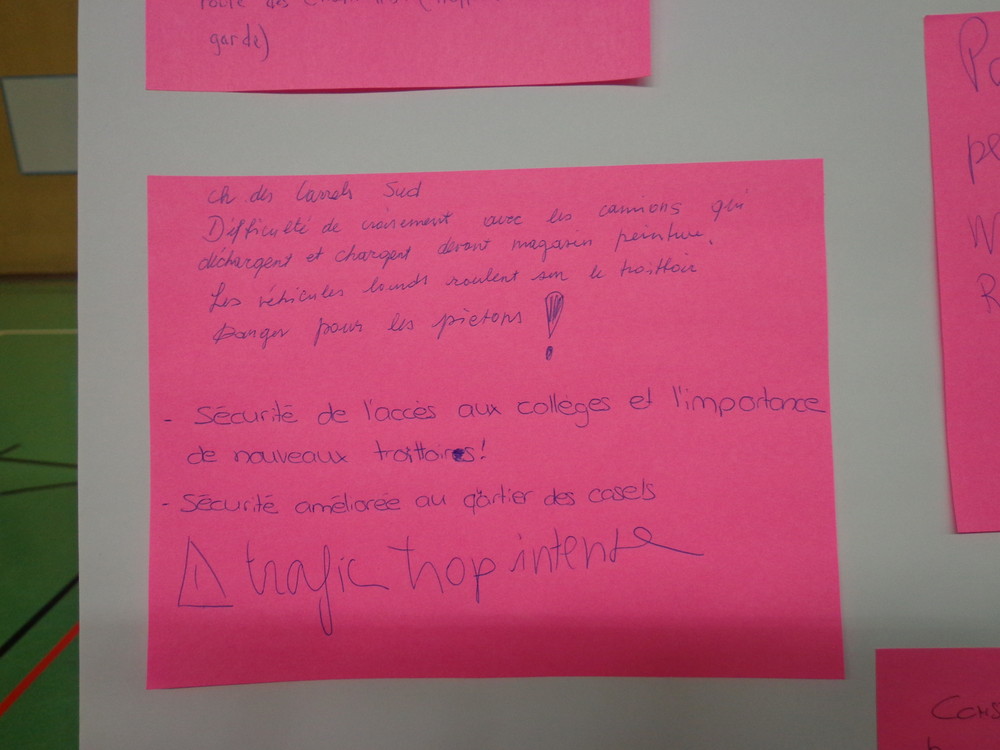 garde)
ch des Carrels Sud
Difficulté de croisement avec les camions qui
déchargent et chargent devant magasin peinture.
Les véhicules lourds roulent sur le trottoir
Danger pour les pietons !
- Sécurité de l'accès aux collèges et l'importance
de nouveaux trottoires!
- Sécurité améliorée au qartier des casels
! trafic trop intense